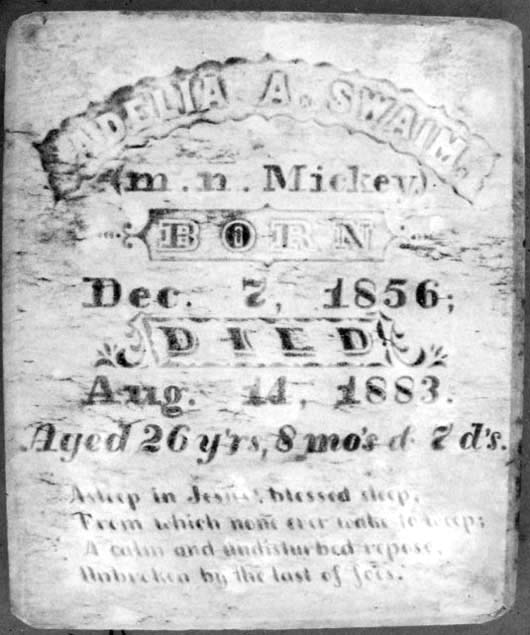 ADELIA A. SWAIM.
(m. n. Mickey.)
BORN
Dec. 7, 1856;
DIED
Aug. 14, 1883.
Aged 26 y'rs, 8 mo's & 7 d's.
Asleep in Jesus! blessed sleep,
From which none ever wake to weep;
A calm and undisturbed repose,
Unbroken by the last of foes.